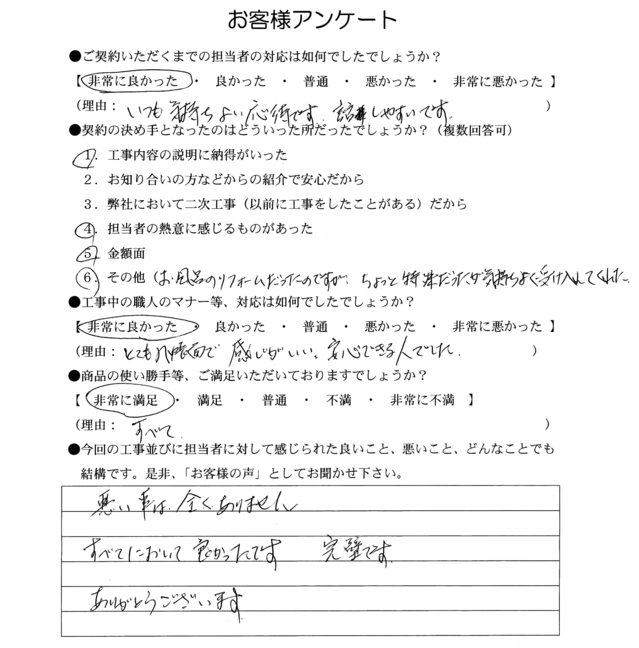 お客様アンケート
●ご契約いただくまでの担当者の対応は如何でしたでしょうか？
【 非常に良かった ・ 良かった ・ 普通 ・ 悪かった ・ 非常に悪かった 】
（理由： いつも気持ちよい応待です。話しやすいです。 ）
●契約の決め手となったのはどういった所だったでしょうか？（複数回答可）
1．工事内容の説明に納得がいった
2．お知り合いの方などからの紹介で安心だから
3．弊社において二次工事（以前に工事をしたことがある）だから
4．担当者の熱意に感じるものがあった
5．金額面
6．その他（お風呂のリフォームだったのですが、ちょっと特殊だったが気持ちよく受け入れてくれた。
●工事中の職人のマナー等、対応は如何でしたでしょうか？
【 非常に良かった ・ 良かった ・ 普通 ・ 悪かった ・ 非常に悪かった 】
（理由： とても几帳面で感じがいい、安心できる人でした。 ）
●商品の使い勝手等、ご満足いただいておりますでしょうか？
【 非常に満足 ・ 満足 ・ 普通 ・ 不満 ・ 非常に不満 】
（理由： すべて ）
●今回の工事並びに担当者に対して感じられた良いこと、悪いこと、どんなことでも
結構です。是非、「お客様の声」としてお聞かせ下さい。
悪い事は、全くありません
すべてにおいて良かったです 完璧です。
ありがとうございます